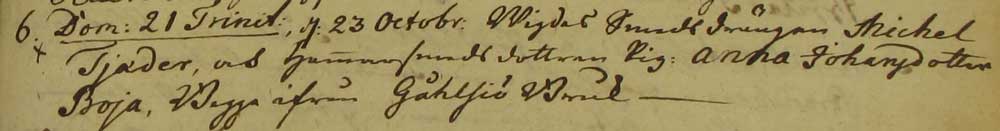 6. Dom: 21 Trinit:, d: 23 Octobr: Wigdes Smeds drängen Michel
x Tjäder, och Hammarsmeds dottren Pig: Anna Johansdotter
Boja, Begge ifrån Gåhlsiö Bruk